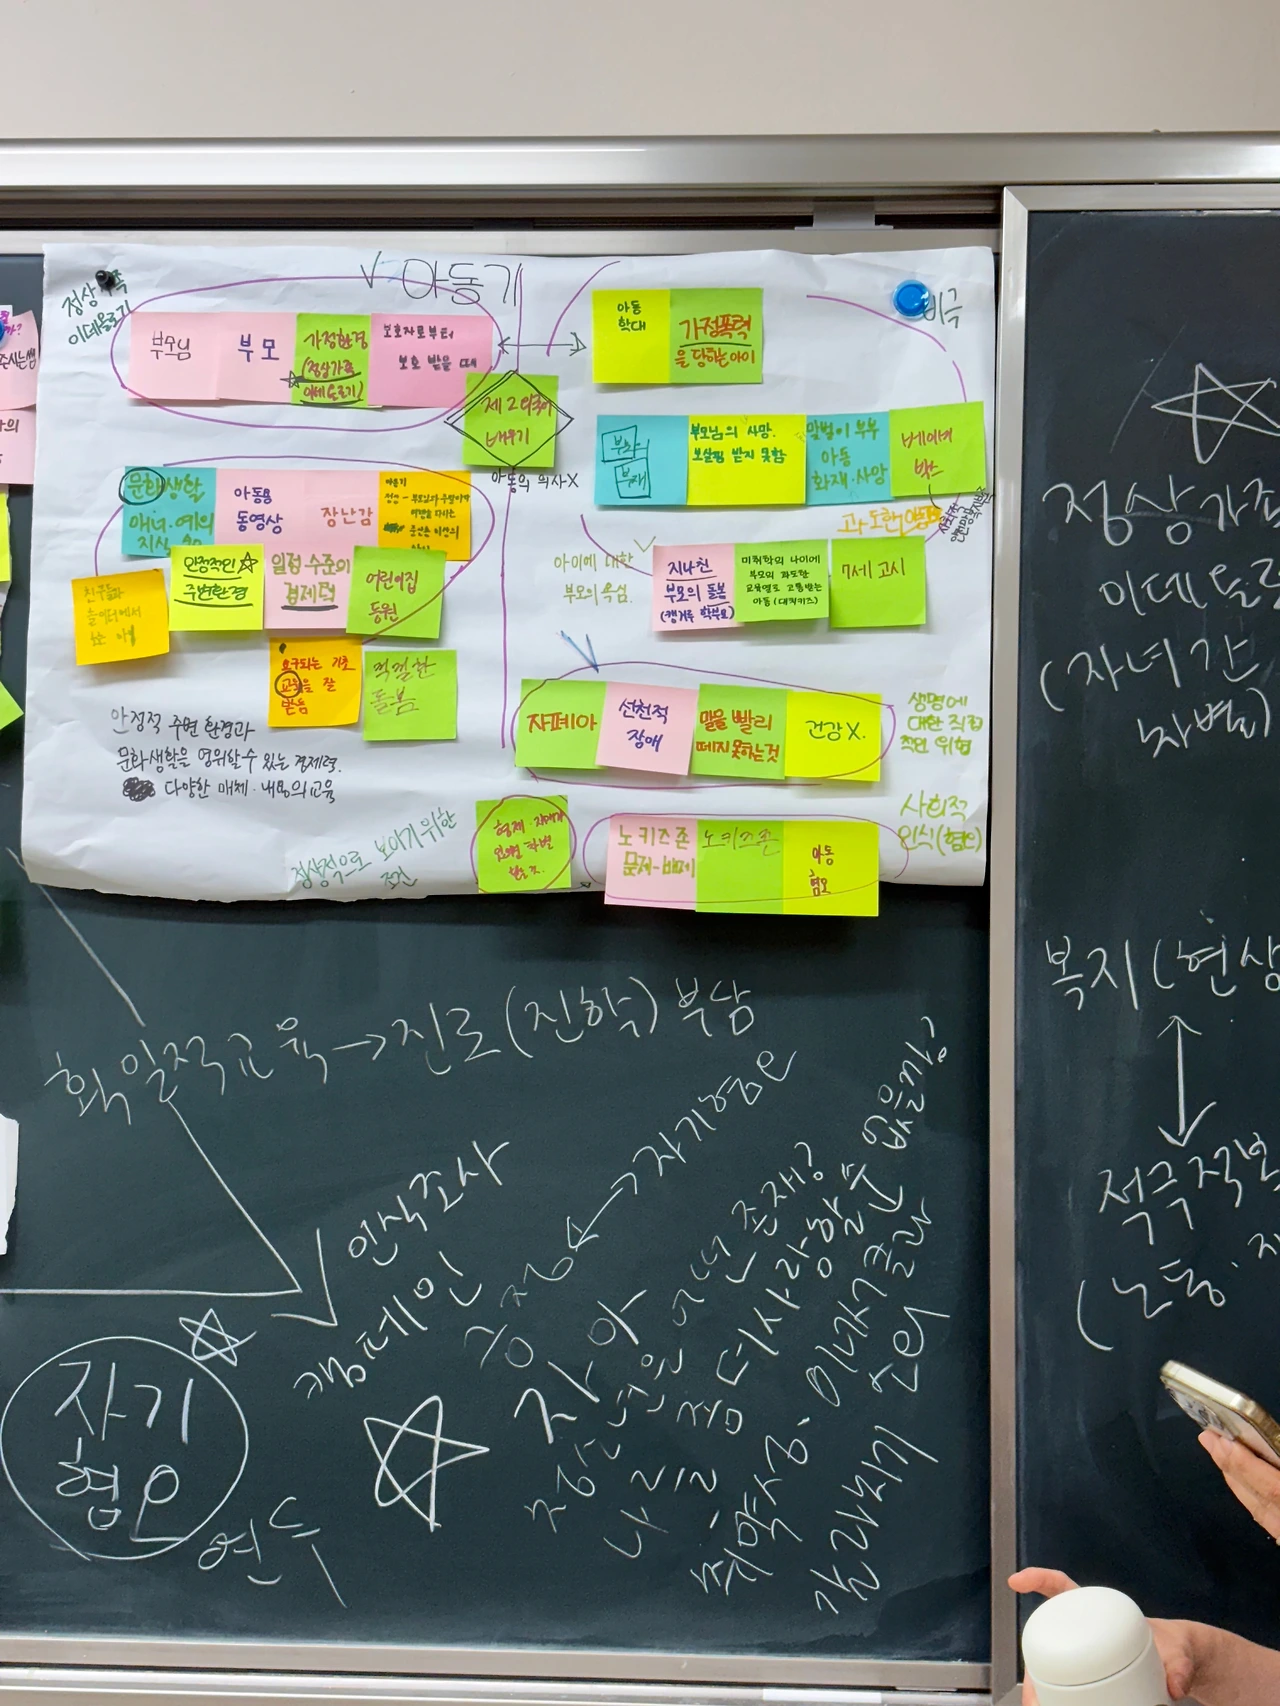 정상가족
이데올로기
✓ 아동기
비극
부모님
부모
가정환경
(정상가족
이데올로기)
보호자로부터
보호 받을 때
아동
학대
가정폭력
을 당하는 아이
제2외국어
배우기
아동의 의사X
부모
부재
부모님의 사망.
보살핌 받지 못함
맞벌이 부부
아동
화재·사망
베이비
박스
문화생활
아동용
동영상
장난감
친구들과
놀이터에서
안정적인
주변환경
일정 수준의
경제력
어린이집
등원
요구되는 기초
교육을 잘
받음
적절한
돌봄
아이에 대한
부모의 욕심.
지나친
부모의 돌봄
(캥거루 학부모)
미취학의 나이에
부모의 과도한
교육열로 고통받는
아동(대치키즈)
7세 고시
안정적 주변 환경과
문화생활을 영위할 수 있는 경제력.
다양한 매체·내용의 교육
자폐아
선천적
장애
말을 빨리
떼지 못하는것
건강X.
생명에
대한 직접
적인 위협
정상적으로 보이기 위한
조건
형제·자매가
노키즈존
문제-배제
노키즈존
아동
혐오
사회적
인식(혐오)
획일적교육→진로(진학) 부담
인식조사
캠페인
긍정 ↔ 자기혐오
자아
정상은 어떤 존재?
나를 좀 더 사랑할 순 없을까?
취약성·
자기
혐오
연두
정상가족
이데올로
(자녀 간
차별)
복지(현상
적극적
(노동·